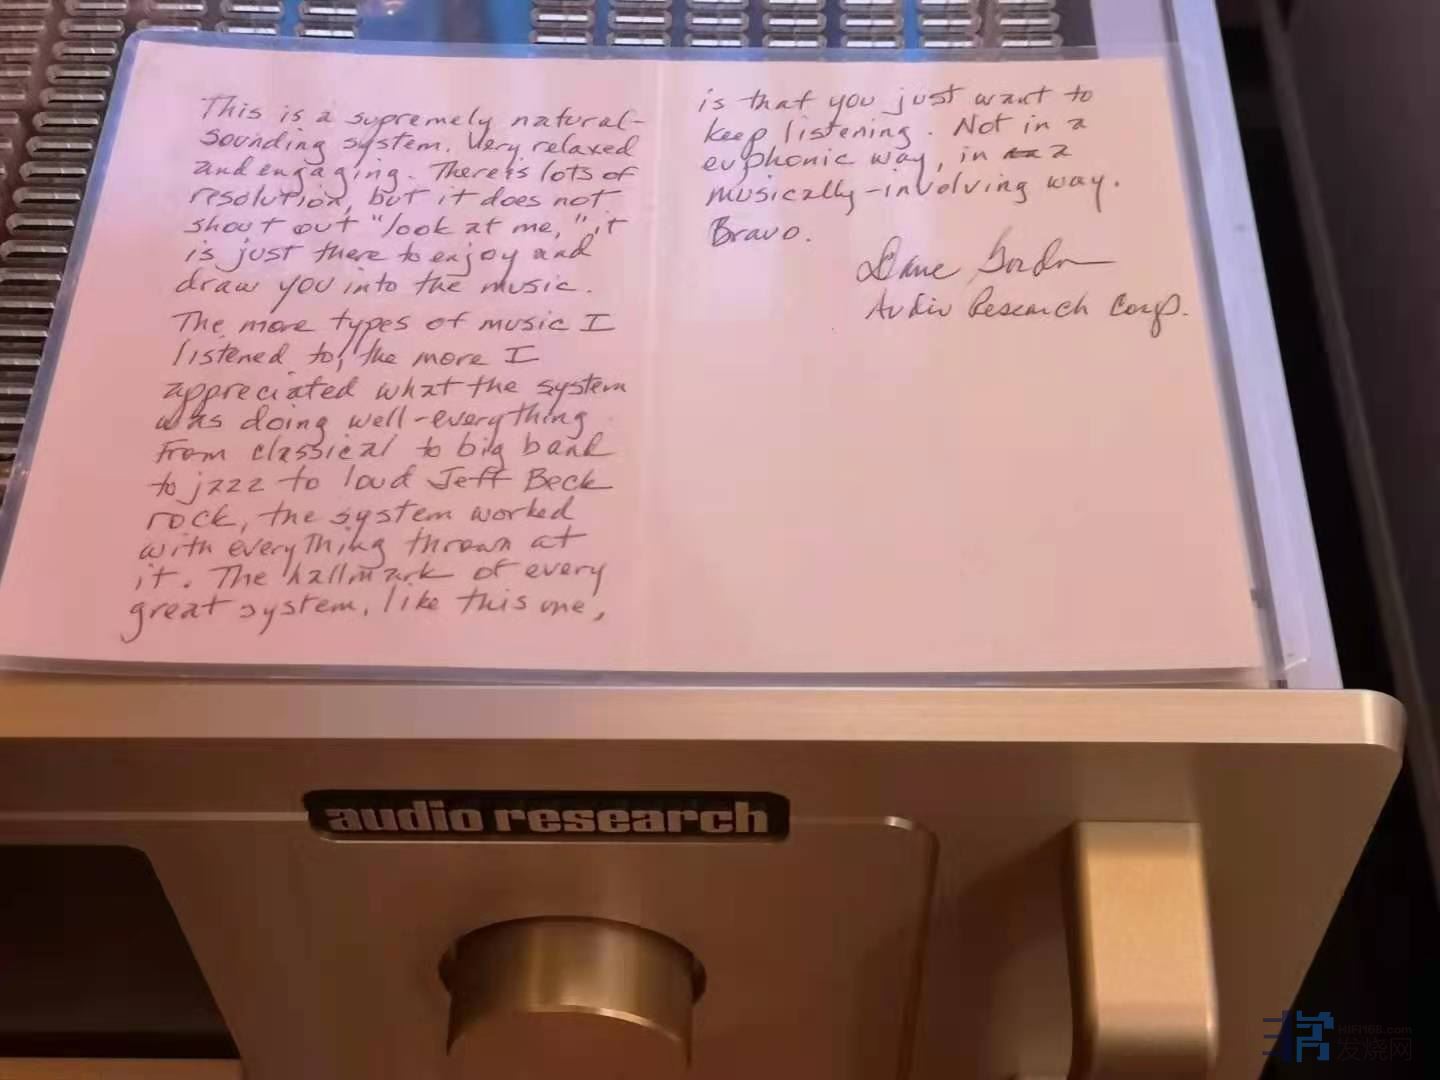 This is a supremely natural-
sounding system. Very relaxed
and engaging. There is lots of
resolution, but it does not
shout out "look at me," it
is just there to enjoy and
draw you into the music.
The more types of music I
listened to, the more I
appreciated what the system
was doing well-everything
from classical to big band
to jazz to loud Jeff Beck
rock, the system worked
with everything thrown at
it. The hallmark of every
great system, like this one,
is that you just want to
keep listening. Not in a
euphonic way, in a
musically-involving way.
Bravo.
Dave Gordon
Audio Research Corp.
audio research
HIFI168.com
发烧网